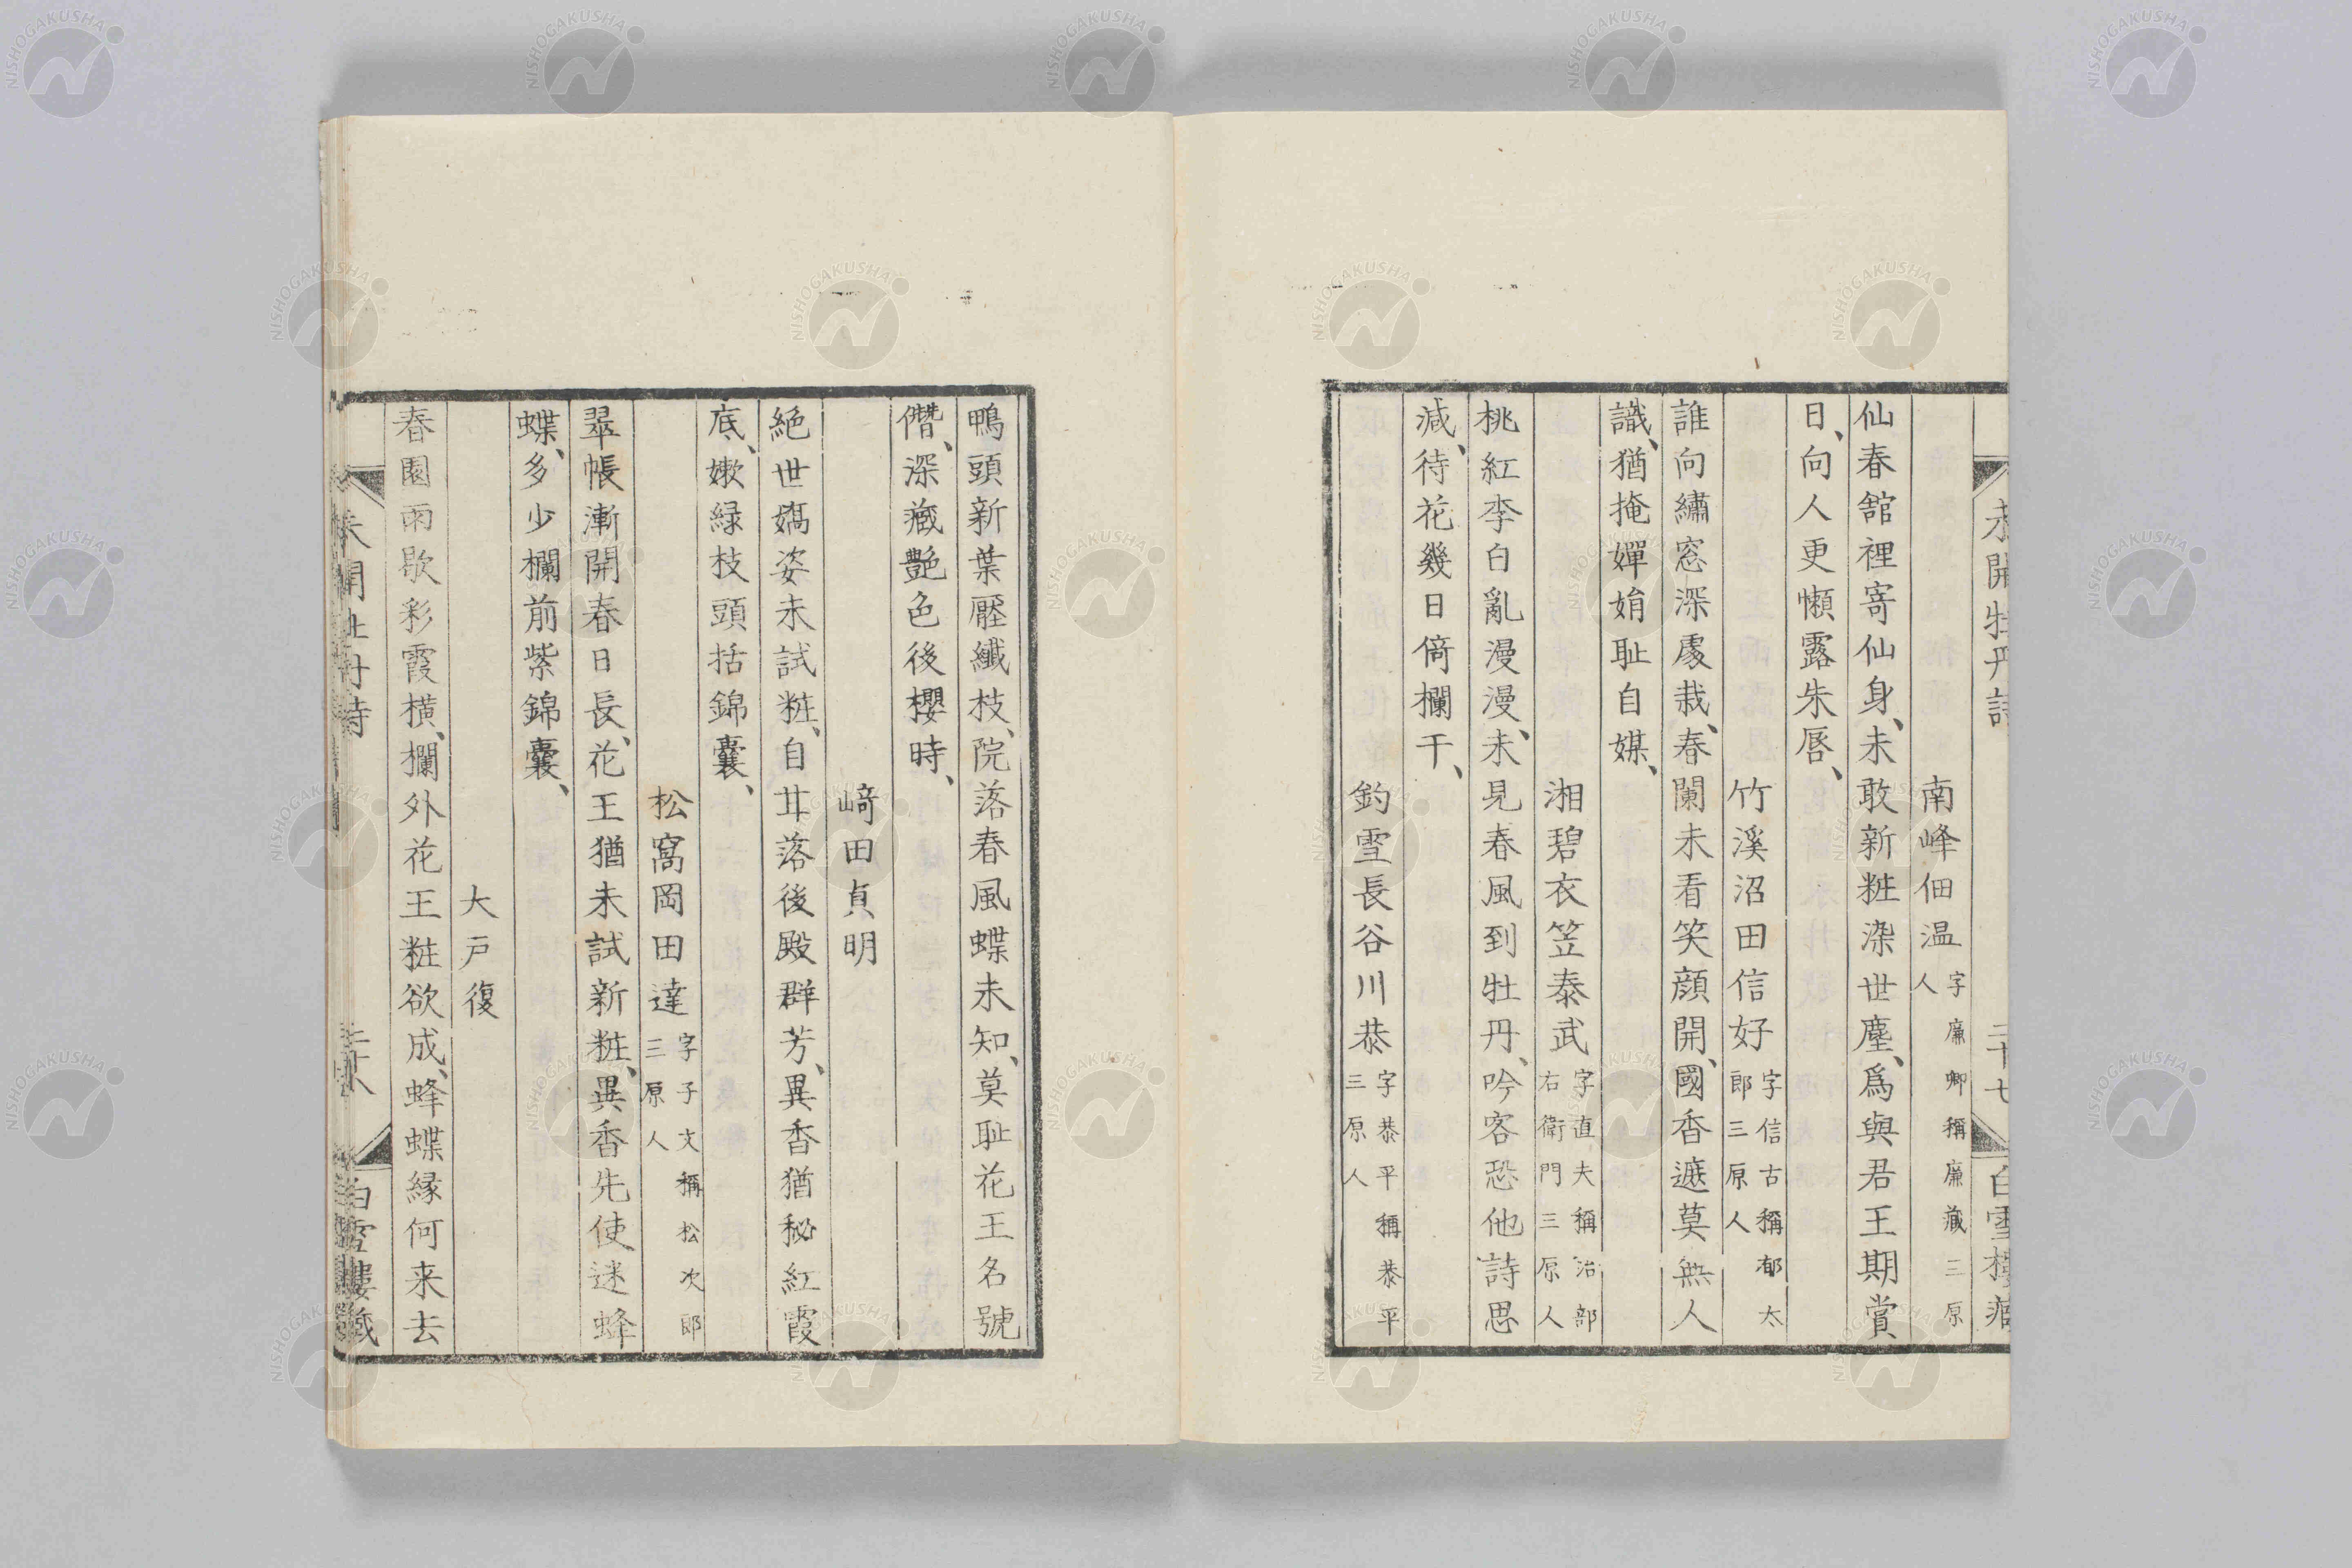 未開牡丹詩
二十七
白雪樓藏
南峰佃温 字廉卿稱廉藏三原
人
仙春舘裡寄仙身、未敢新粧染世塵、爲與君王期賞
日、向人更懶露朱唇、
竹溪沼田信好 字信古稱郁太
郎三原人
誰向繡窓深處栽、春闌未看笑顔開、國香遮莫無人
識、猶掩嬋娟耻自媒、
湘碧衣笠泰武 字直夫稱治部
右衛門三原人
桃紅李白亂漫漫、未見春風到牡丹、吟客恐他詩思
減、待花幾日倚欄干、
釣雪長谷川恭 字恭平稱恭平
三原人
鴨頭新葉壓纖枝、院落春風蝶未知、莫耻花王名號
僭、深藏艶色後櫻時、
﨑田貞明
絶世嬌姿未試粧、自甘落後殿群芳、異香猶秘紅霞
底、嫩緑枝頭括錦囊、
松窩岡田達 字子文稱松次郎
三原人
翠帳漸開春日長、花王猶未試新粧、異香先使迷蜂
蝶、多少欄前紫錦囊、
大戸復
春園雨歇彩霞横、欄外花王粧欲成、蜂蝶縁何来去
未開牡丹詩
白雪樓藏
NISHOGAKUSHA